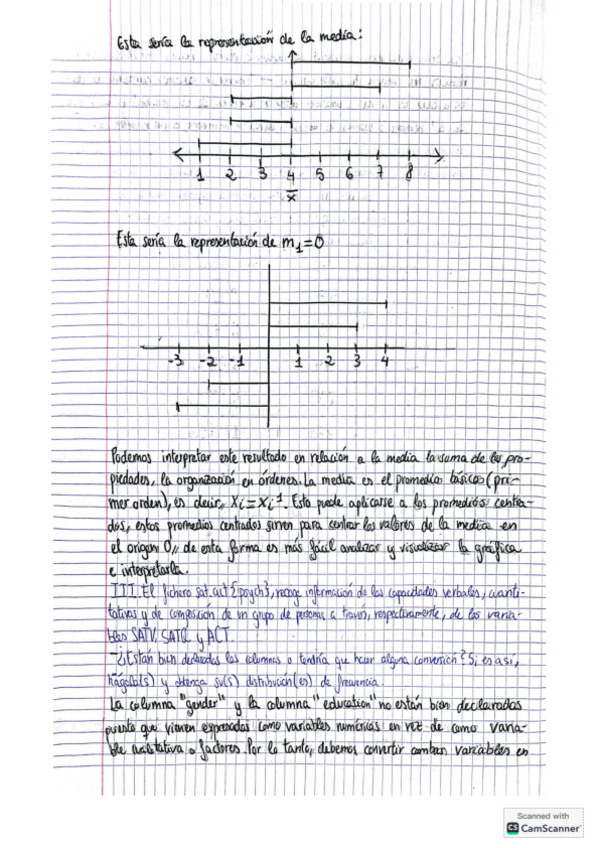 Esta sería la representación de la media:
1 2 3 4 5 6 7 8
x̄
Esta sería la representación de m₁=0
-3 -2 -1 1 2 3 4
Podemos interpretar este resultado en relación a la media la suma de las pro-
piedades, la organización en órdenes. La media es el promedio básico (pri-
mer orden), es decir, Xi = Xi¹. Esto puede aplicarse a los promedios centra-
dos, estos promedios centrados sirven para centrar los valores de la media en
el origen 0, de esta forma es más fácil analizar y visualizar la gráfica
e interpretarla.
III. El fichero sat.act {psych}, recoge información de las capacidades verbales, cuanti-
tativas y de composición de un grupo de personas a través, respectivamente, de las varia-
bles SATV, SATQ y ACT.
- ¿Están bien declaradas las columnas o tendría que hacer alguna conversión? Si es así,
hágala(s) y obtenga su(s) distribución(es) de frecuencia.
La columna "gender" y la columna "education" no están bien declaradas
puesto que vienen expresadas como variables numéricas en vez de como varia-
ble cualitativa o factores. Por lo tanto, debemos convertir ambas variables en
Scanned with
CS CamScanner